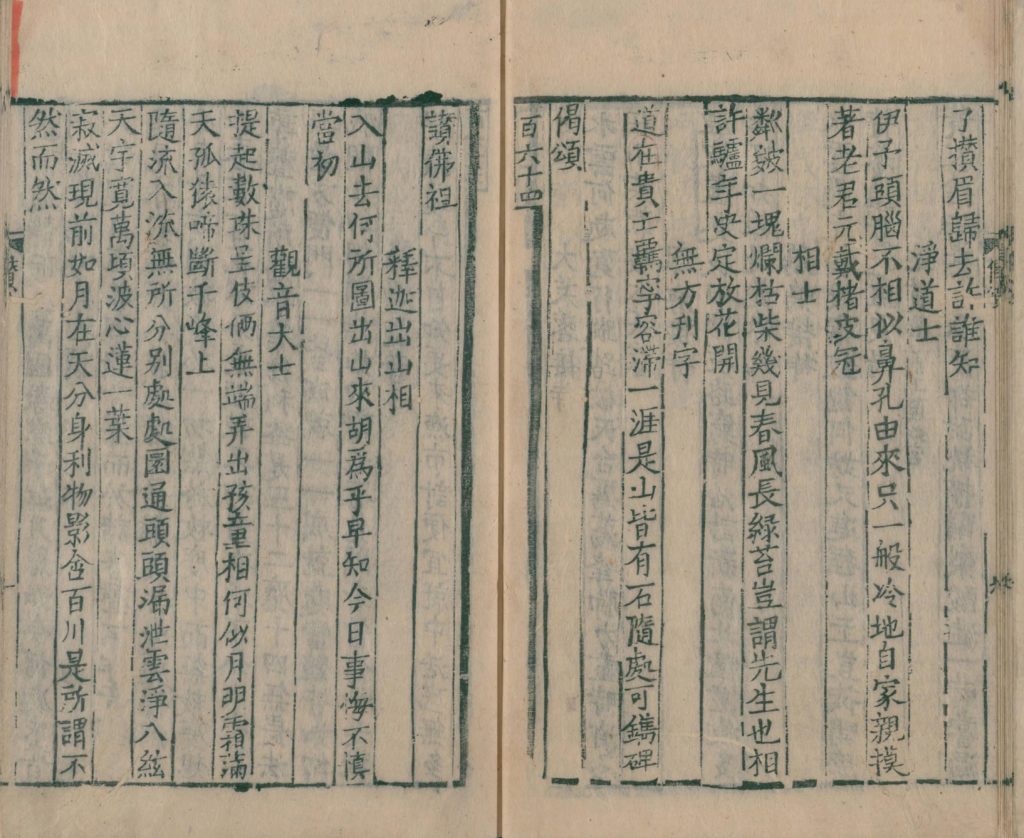 了攢眉歸去許誰知
淨道士
伊子頭腦不相似鼻孔由來只一般冷地自家親摸
著老君元戴楮皮冠
相士
皺皴一塊爛枯柴幾見春風長綠苔豈謂先生也相
許驢年史定放花開
無方刊字
道在貴士羈孚容滯一涯是山皆有石隨處可鐫碑
偈頌
百六十四
讃佛祖
釋迦出山相
入山去何所圖出山來胡爲乎早知今日事悔不慎
當初
觀音大士
提起數珠呈伎倆無端弄出孩童相何似月明霜滿
天孤猿啼斷千峰上
隨流入流無所分別處處圓通頭頭漏泄雲淨八紘
天宇寬萬頃波心蓮一葉
寂滅現前如月在天分身利物影含百川是所謂不
然而然
讃